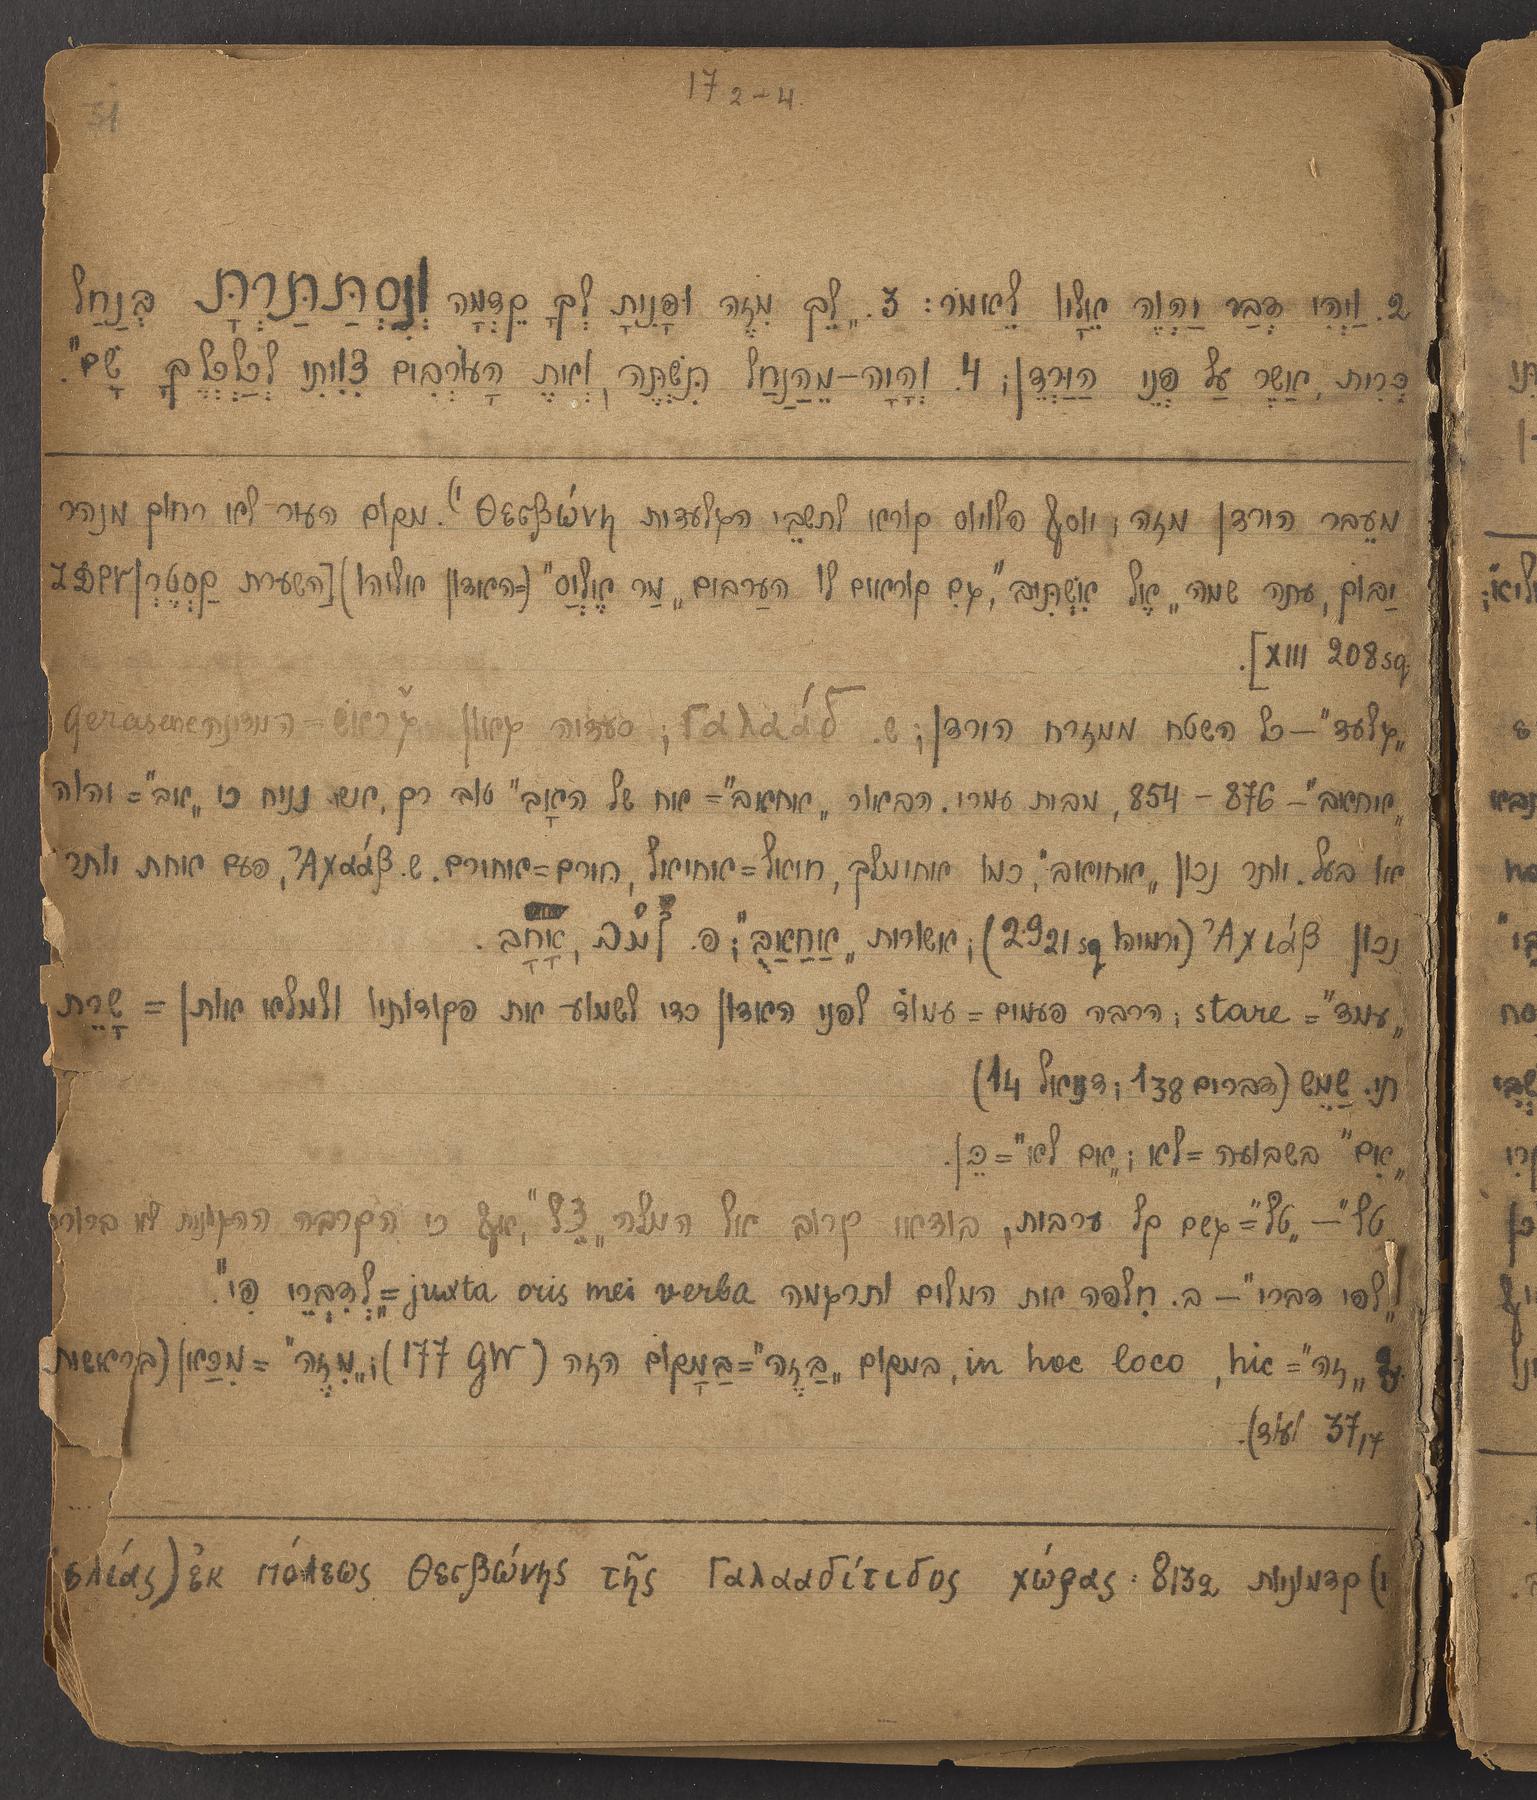 17 2-4.
51
2. וַיְהִי דְבַר יַהְוֶה אֵלָיו לֵאמֹר: 3. „לֵךְ מִזֶּה וּפָנִיתָ לְּךָ קֵדְמָה וְנִסְתַּתַּרְתָּ בְּנַחַל
כְּרִית, אֲשֶׁר עַל פְּנֵי הַיַּרְדֵּן; 4. וְהָיָה–מֵהַנַּחַל תִּשְׁתֶּה, וְאֶת הָעֹרְבִים צִוִּיתִי לְכַלְכֶּלְךָ שָׁם".
מעֵבר הירדן מזה; יוסף פלויוס קורא לתשבֵי הגלעדית Θεσβώνη ¹). מקום העיר לא רחוק מנהר
יַבוק, עתה שמה „אֶל אִשְׁתִּיבּ", גם קוראים לו הערבים „מַר אֶלְיַס" (=האדון אליהו) [השערת קַסְטֶרְן ZDPV
XIII 208 sq].
„גלעד" – כל השטח ממזרח הירדן; ש. Γαλαάδ; סעדיה גאון גֿראש = המדינה Gerasene
„אחאב" – 876 – 854, מבית עמרי. הבאור „אחאב" = אח של האָב" טוב רק, אם נניח כי „אב" = יהוה
או בעל. יותר נכון „אחיאב", כמו אחימלך, חיאל=אחיאל, חירם=אחירם. ש. Ἀχαάβ, פעם אחת יותר
נכון Ἀχιάβ (ירמיהו 29 21 sq); אשורית „אַחַאַבּ"; פ. אָחָב.
„עמד" = stare; הרבה פעמים = עמוֹד לפני האדון כדי לשמוע את פקודותיו ולמלא אותן = שָׁרֵת
תי. שַׁמֵּשׁ (דברים 1 38; דניאל 1 4)
„אִם" בשבועה =לא; „אם לא" = כֵּן.
טל" – „טַל" = גשם קל ערבית, בודאי קרוב אל המלה „צֵל", אף כי הקרבה ההגיונית לא ברורה
„לפי דברי" – ב. חִלפה את המלים ותרגמה juxta oris mei verba = „לְדִבְרֵי פִי".
„זה" = hic, in hoc loco, במקום „בַּזֶּה" = בַּמָקום הזה (177 GW); „מִזֶּה" = מִכַּאן (בראשית
37 17 ועוד).
¹) קדמוניות 8 13 2: ἐκ πόλεως Θεσβώνης τῆς Γαλααδίτιδος χώρας